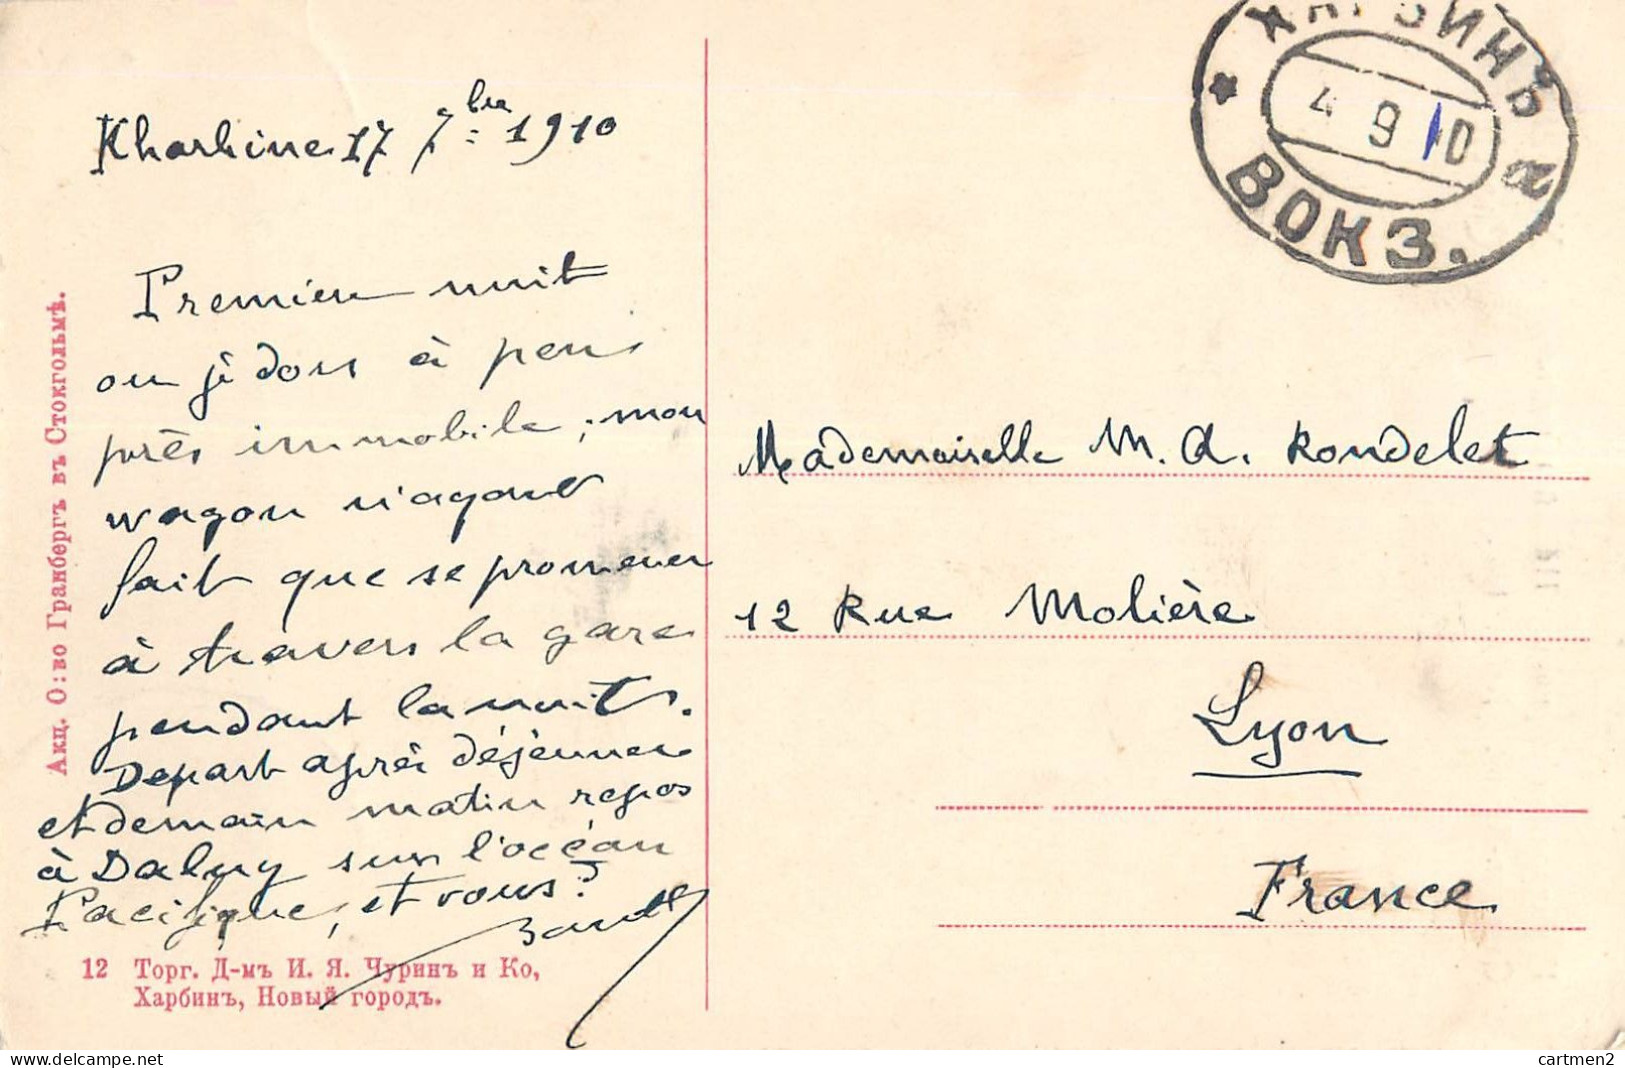 Kharbine 17 7bre 1910
Première nuit
ou je dors à peu
près immobile, mon
wagon n'ayant
fait que se promener
à travers la gare
pendant la nuit.
Depart après déjeuner
et demain matin repos
à Dalny sur l'océan
Pacifique, et vous?
Акц. О:во Гранбергъ въ Стокгольмѣ.
12 Торг. Д-мъ И. Я. Чуринъ и Ко,
Харбинъ, Новый городъ.
ХАРБИНЪ
4 9 10
ВОКЗ.
а
Mademoiselle M. A. Rondelet
12 Rue Molière
Lyon
France
cartmen2